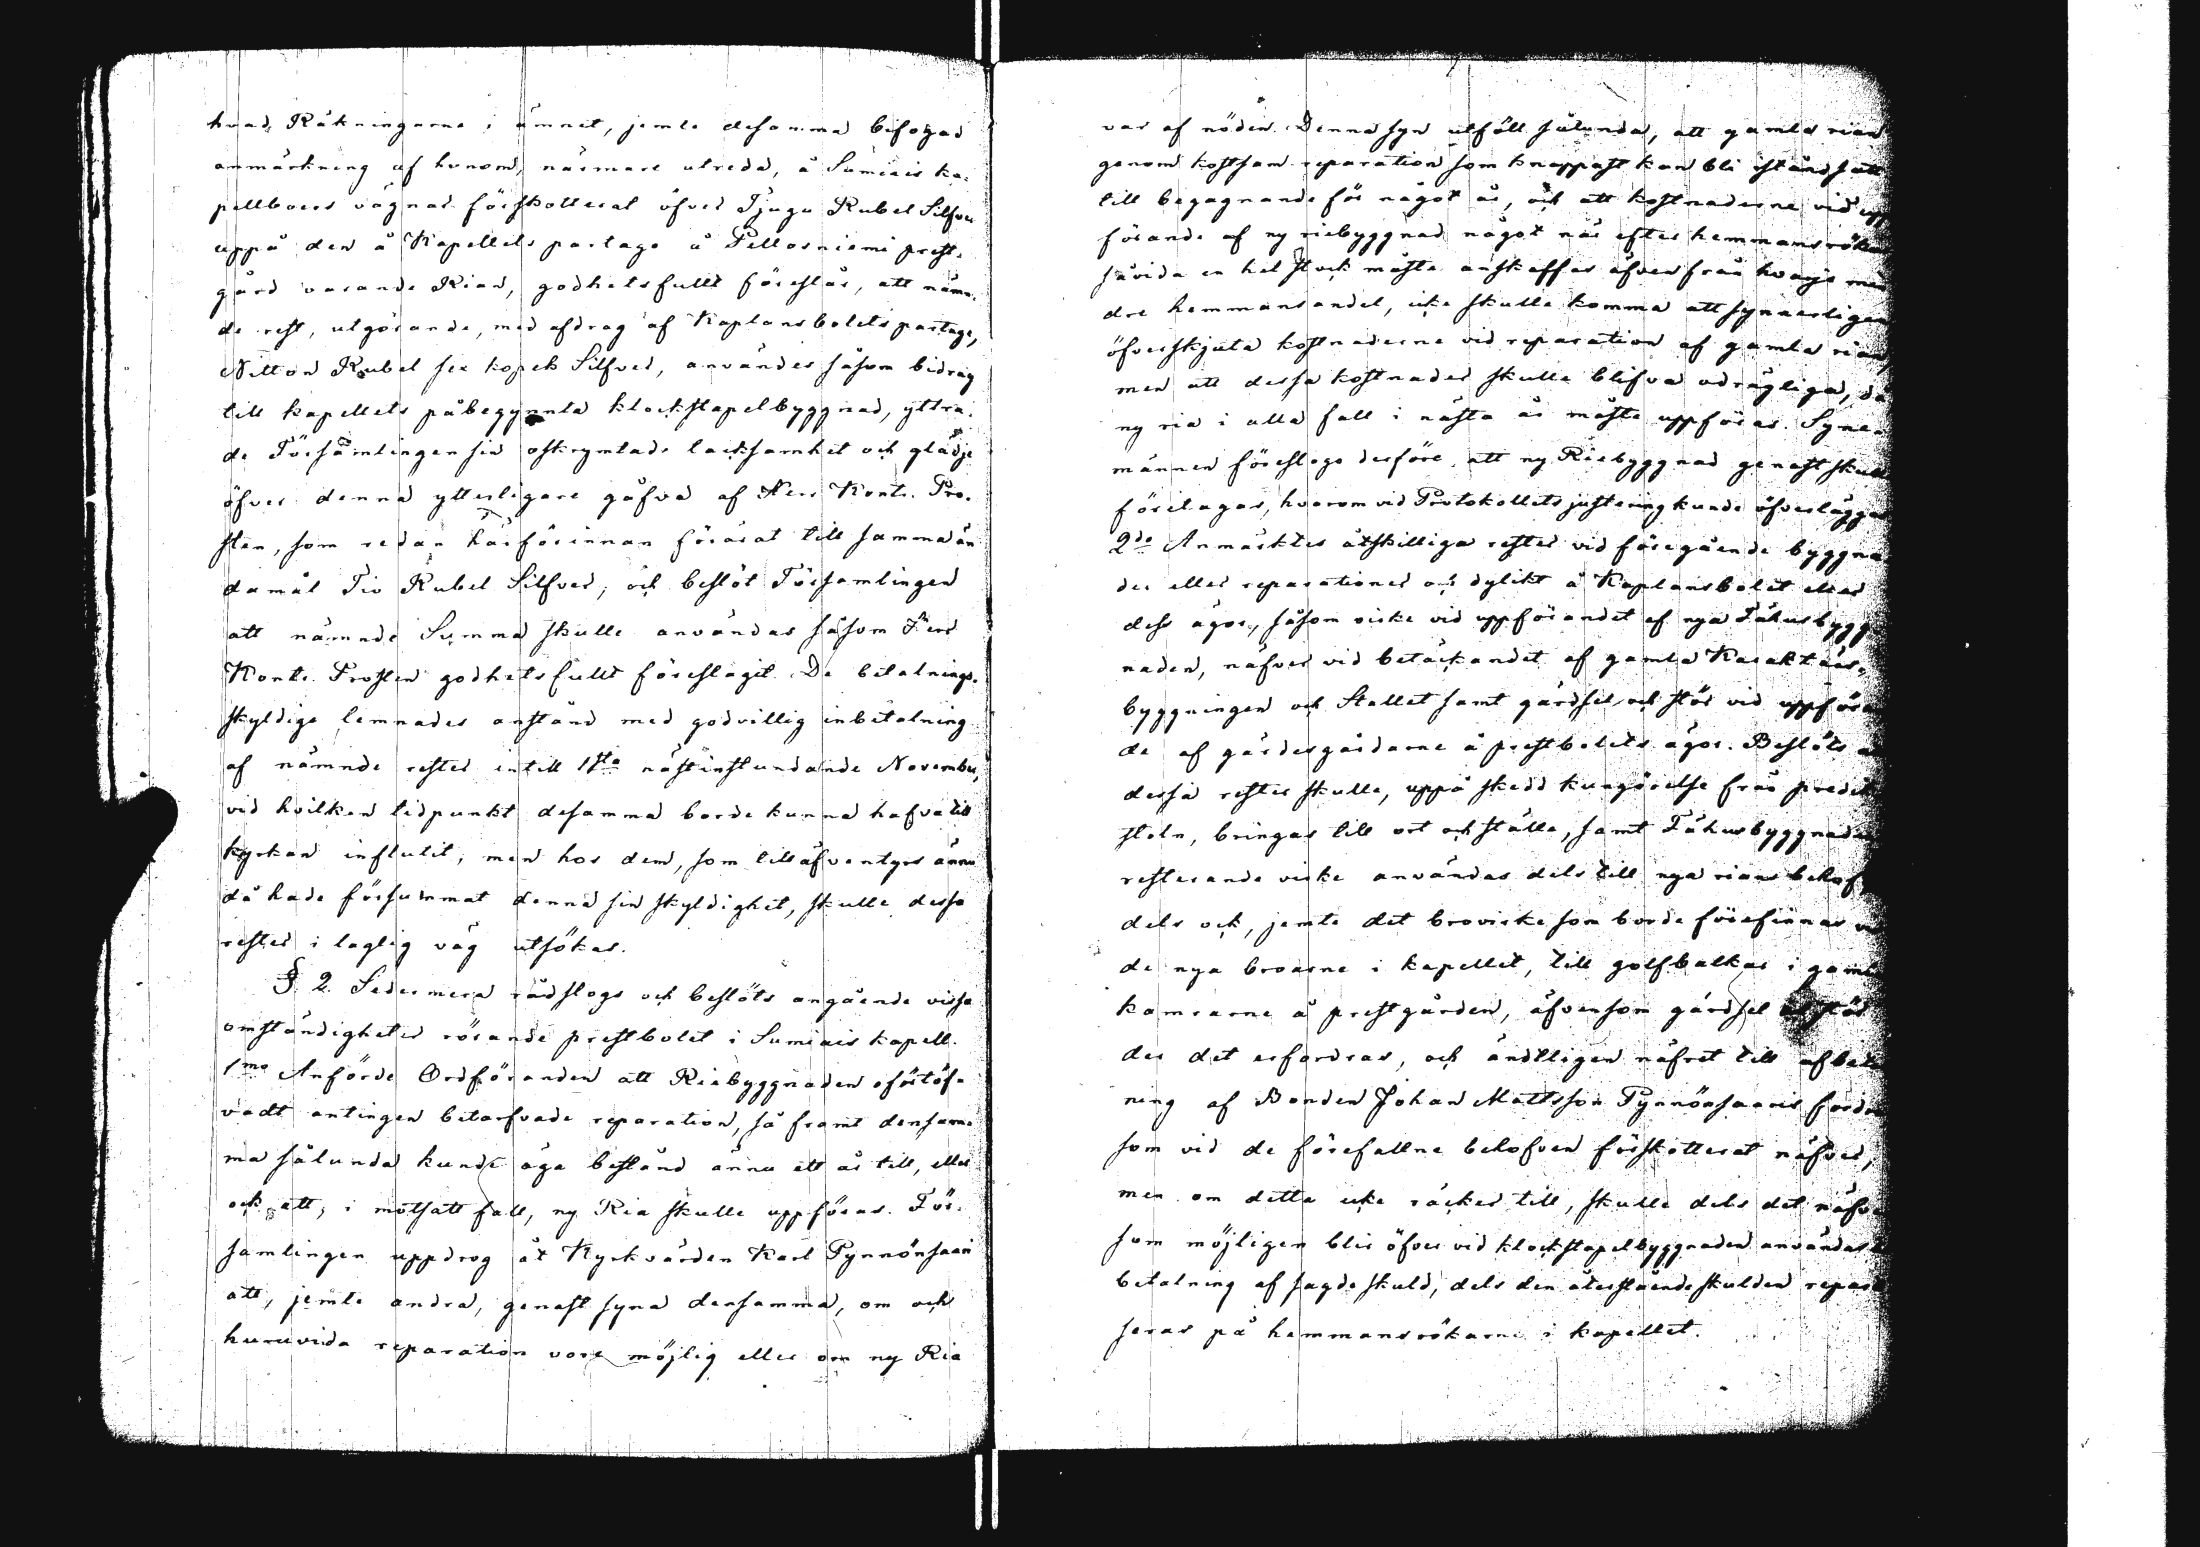 hvad Räkningarne i ämnet, jemte desamma bifogad
anmärkning af honom, närmare utreda, å Sumiais ka-
pellboers vägnar förskotterat öfver Tjugu Rubel Silfver
uppå den å Kapellets partage å Pellosniemi prest-
gård varande Rian, godhetsfullt föreslår, att nämn-
de rest, utgörande, med afdrag af Kaplansbolets partage,
Nitton Rubel sex kopek Silfver, användes såsom bidrag
till kapellets påbegynnta klockstapelbyggnad, yttra-
de Församlingen sin oskrymtade tacksamhet och glädje
öfver denna ytterligare gåfva af Herr Kontr. Pro-
sten, som redan härförinnan förärat till samma än
damål Tio Rubel Silfver; och beslöt Församlingen
att nämnde Summa skulle användas såsom Herr
Kontr. Prosten godhetsfullt föreslagit. De betalnings-
skyldige lemnades anstånd med godvillig inbetalning
af nämnde rester intill 1sta nästinstundande November,
vid hvilken tidpunkt desamma borde kunna hafva till
kyrkan influtit; men hos dem, som tilläfventyrs ännu
då hade försummat denna sin skyldighet, skulle dessa
rester i laglig väg utsökas.
§ 2. Sedermera rådslogs och beslöts angående vissa
omständigheter rörande prestbolet i Sumiais kapell.
1mo Anförde Ordföranden att Riebyggnaden oförtöf-
vadt antingen betarfvade reparation, så framt densam-
ma sålunda kunde äga bestånd ännu ett år till, eller
ock att, i motsatt fall, ny Ria skulle uppföras. För-
samlingen uppdrog åt Kyrkvärden Karl Pynnönsaari
att, jemte andra, genast syna densamma, om och
huruvida reparation vore möjlig eller om ny Ria
var af nöden. Denna syn utföll sålunda, att gamla rian
genom kostsam reparation som knappast kan bli iståndsatt
till begagnande för något år, och att kostnaderne vid upp
förande af ny riebyggnad något när efter hemmansröken
såvida en hel stock måste anskaffas äfven från hvarje min
dre hemmansandel, icke skulle komma att synnerligen
öfverskjuta kostnaderne vid reparation af gamla rian,
men att dessa kostnader skulle blifva odrägliga, då
ny ria i alla fall i nästa år måste uppföras. Syne-
männen föreslogo derföre att ny Riebyggnad genast skulle
företagas, hvarom vid Protokollets justering kunde öfverläggas
2do Anmärktes åtskilliga rester vid föregående byggna
der eller reparationer och dylikt å Kaplansbolet eller
dess ägor, såsom virke vid uppförandet af nya Fähusbygg-
naden, näfver vid betäckandet af gamla Karaktärs-
byggningen och Stallet samt gärdsel och stör vid uppföran
de af gärdesgårdarne å prestbolets ägor. Beslöts att
dessa rester skulle, uppå skedd kungörelse från predik
stoln, bringas till ort och ställe, samt Fähusbyggnaden
resterande virke användas dels till nya rians behof,
dels ock, jemte det brovirke som borde förefinnas vid
de nya broarne i kapellet, till golfbalkar i gamla
kamrarne å prestgården, äfvensom gärdsel och stör
der det erfordras, och ändtligen näfret till afbetal
ning af Bonden Johan Mattsson Pynnönsaaris fordran
som vid de förefallne behofven förskotterat näfver;
men om detta icke räcker till, skulle dels det näfver
som möjligen blir öfver vid klockstapelbyggnaden användas till
betalning af sagde skuld, dels den återstående skulden reparti
seras på hemmansrökarne i kapellet.